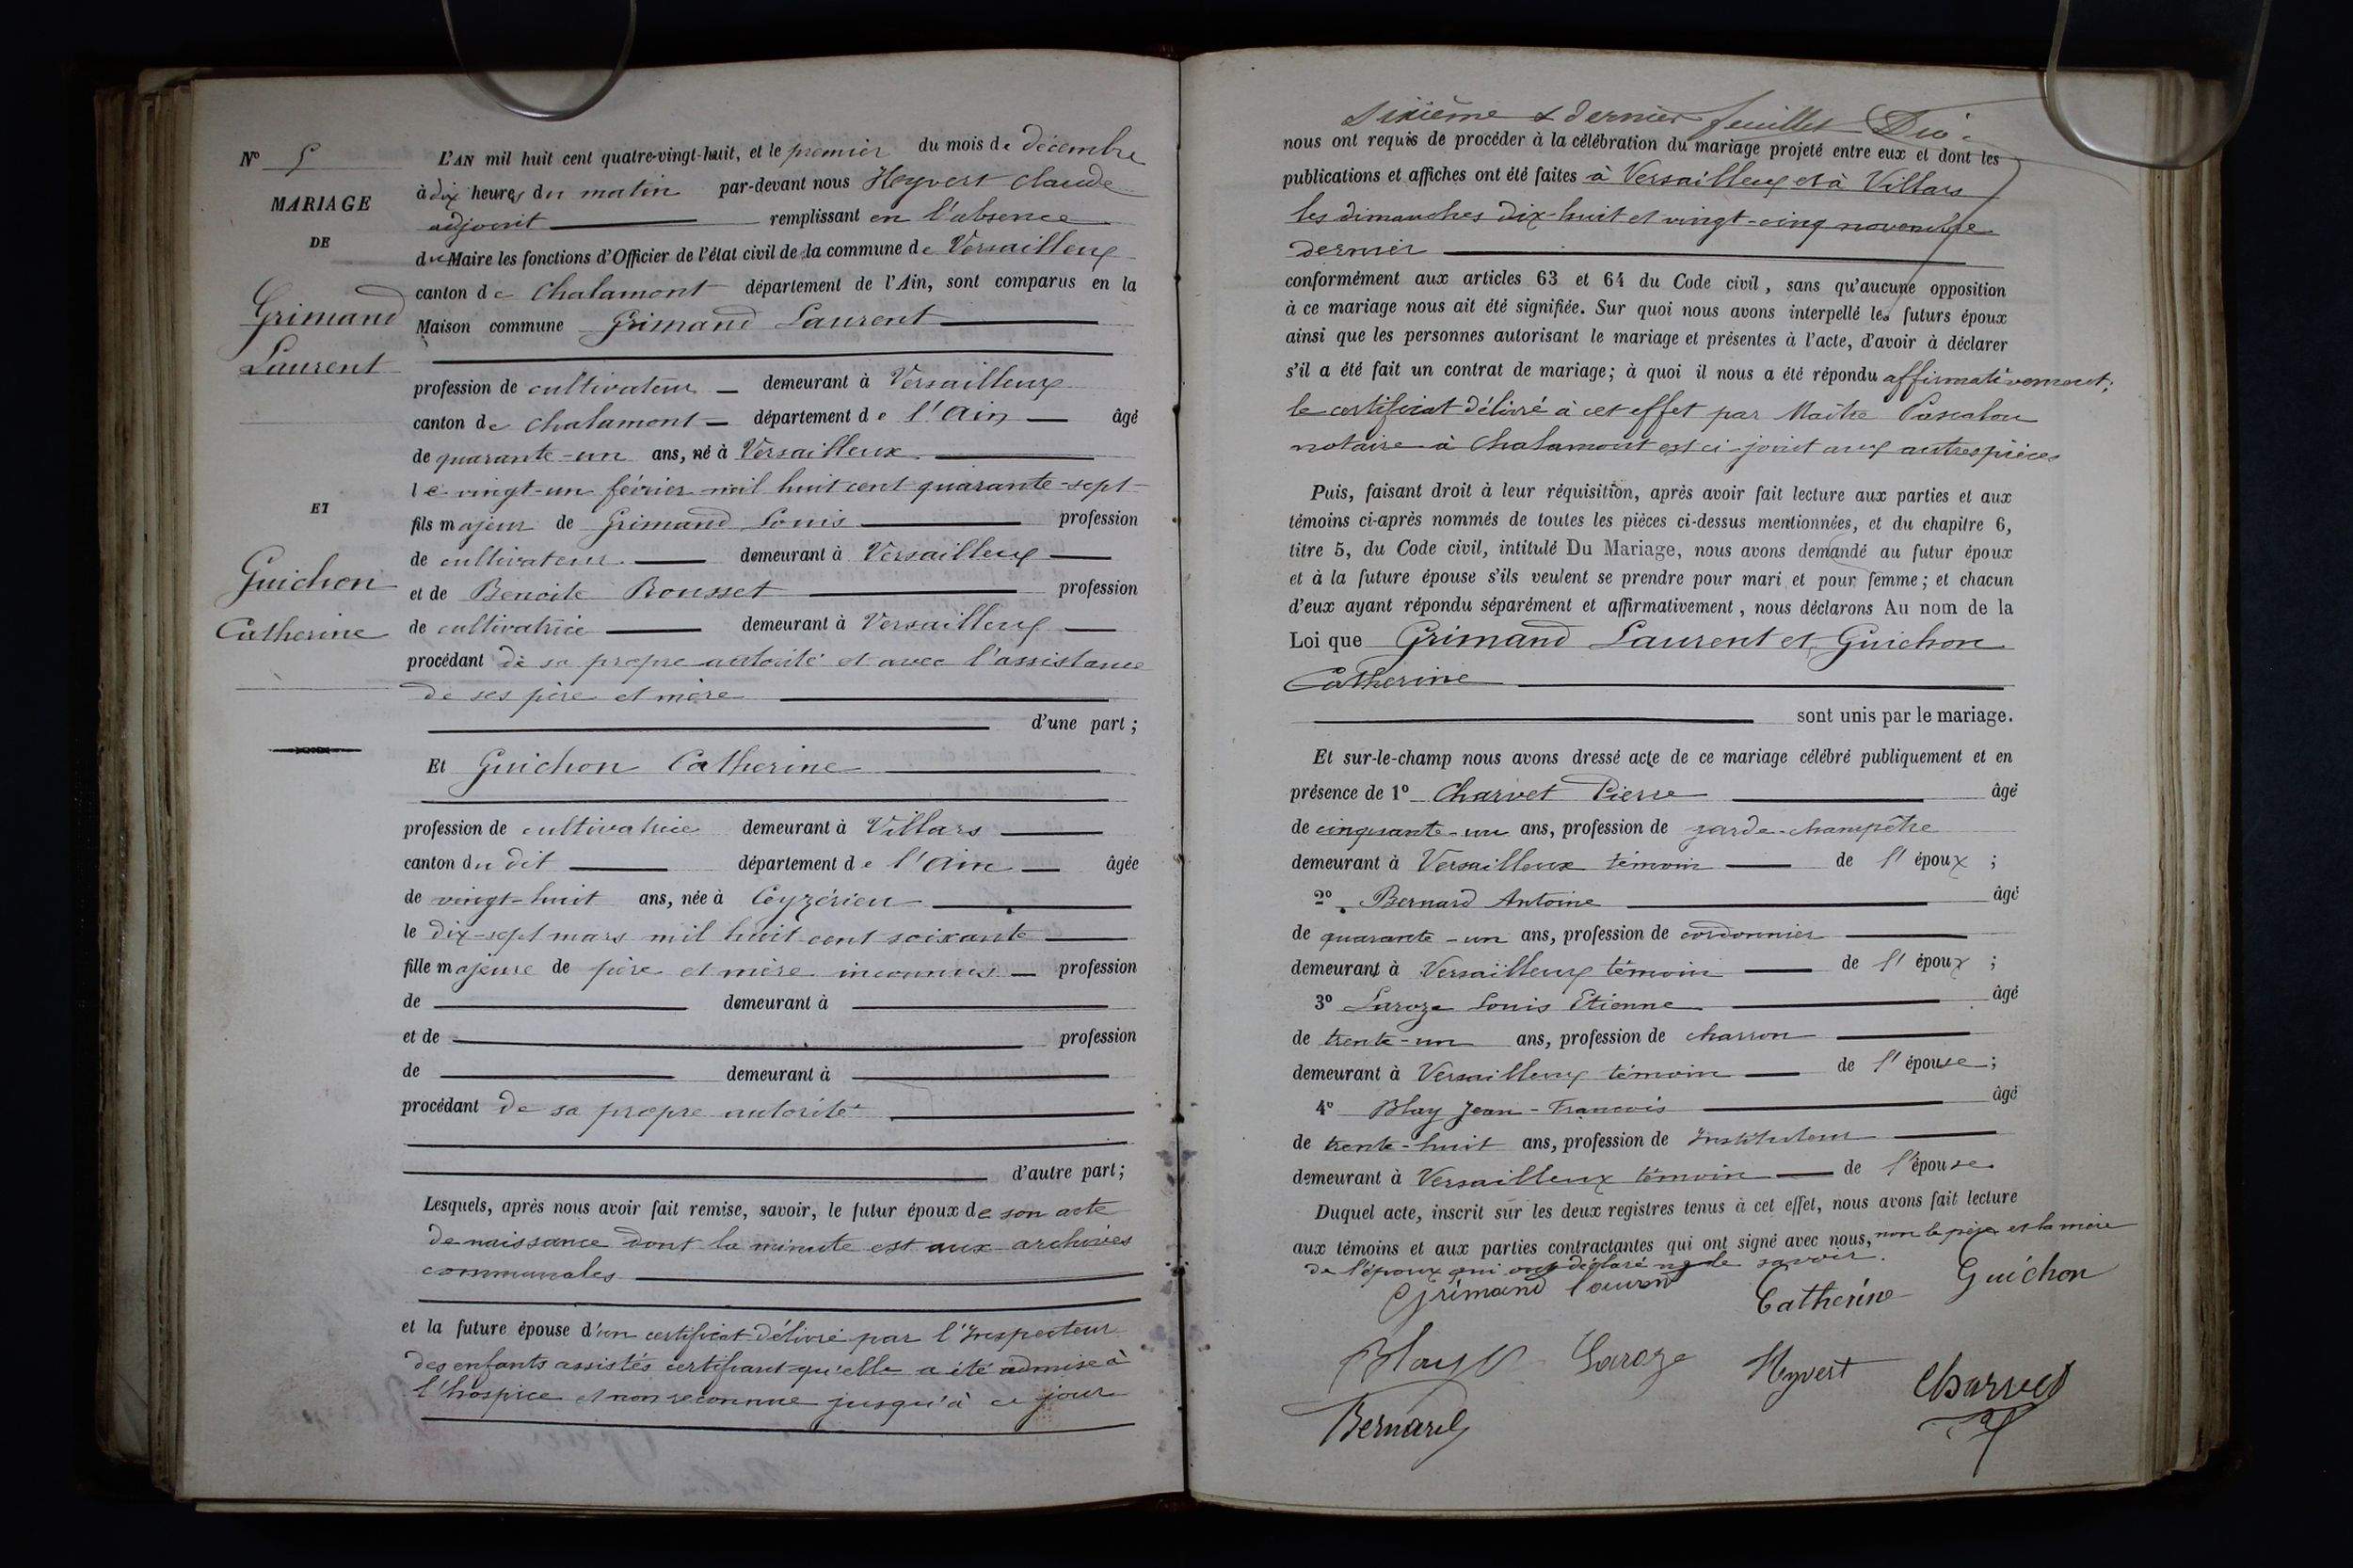 N° 5
MARIAGE
DE
Grimand
Laurent
ET
Guichon
Catherine
L'AN mil huit cent quatre-vingt-huit, et le premier du mois de décembre
à dix heures du matin par-devant nous Heyvert Claude
adjoint remplissant en l'absence
du Maire les fonctions d'Officier de l'état civil de la commune de Versailleux
canton de Chalamont département de l'Ain, sont comparus en la
Maison commune Grimand Laurent
profession de cultivateur demeurant à Versailleux
canton de Chalamont département de l'Ain âgé
de quarante-un ans, né à Versailleux
le vingt-un février mil huit cent quarante-sept
fils majeur de Grimand Louis profession
de cultivateur demeurant à Versailleux
et de Benoite Rousset profession
de cultivatrice demeurant à Versailleux
procédant de sa propre autorité et avec l'assistance
de ses père et mère
d'une part ;
Et Guichon Catherine
profession de cultivatrice demeurant à Villars
canton du dit département de l'Ain âgée
de vingt-huit ans, née à Ceyzérieu
le dix-sept mars mil huit cent soixante
fille majeure de père et mère inconnus profession
de demeurant à
et de profession
de demeurant à
procédant de sa propre autorité
d'autre part ;
Lesquels, après nous avoir fait remise, savoir, le futur époux de son acte
de naissance dont la minute est aux archives
communales
et la future épouse d'un certificat délivré par l'Inspecteur
des enfants assistés certifiant qu'elle a été admise à
l'hospice et non reconnue jusqu'à ce jour
Sixième & dernier feuillet
nous ont requis de procéder à la célébration du mariage projeté entre eux et dont les
publications et affiches ont été faites à Versailleux et à Villars
les dimanches dix-huit et vingt-cinq novembre
dernier
conformément aux articles 63 et 64 du Code civil, sans qu'aucune opposition
à ce mariage nous ait été signifiée. Sur quoi nous avons interpellé les futurs époux
ainsi que les personnes autorisant le mariage et présentes à l'acte, d'avoir à déclarer
s'il a été fait un contrat de mariage ; à quoi il nous a été répondu affirmativement ;
le certificat délivré à cet effet par Maître Pascalon
notaire à Chalamont est ci-joint aux autres pièces
Puis, faisant droit à leur réquisition, après avoir fait lecture aux parties et aux
témoins ci-après nommés de toutes les pièces ci-dessus mentionnées, et du chapitre 6,
titre 5, du Code civil, intitulé Du Mariage, nous avons demandé au futur époux
et à la future épouse s'ils veulent se prendre pour mari et pour femme ; et chacun
d'eux ayant répondu séparément et affirmativement, nous déclarons Au nom de la
Loi que Grimand Laurent et Guichon
Catherine
sont unis par le mariage.
Et sur-le-champ nous avons dressé acte de ce mariage célébré publiquement et en
présence de 1° Charvet Pierre âgé
de cinquante-un ans, profession de garde-champêtre
demeurant à Versailleux témoin de l'époux ;
2° Bernard Antoine âgé
de quarante-un ans, profession de cordonnier
demeurant à Versailleux témoin de l'époux ;
3° Laroze Louis Etienne âgé
de trente-un ans, profession de charron
demeurant à Versailleux témoin de l'épouse ;
4° Blay Jean-Francois âgé
de trente-huit ans, profession de Instituteur
demeurant à Versailleux témoin de l'épouse
Duquel acte, inscrit sur les deux registres tenus à cet effet, nous avons fait lecture
aux témoins et aux parties contractantes qui ont signé avec nous, non le père et la mère
de l'époux qui ont déclaré ne le savoir.
Grimand laurent Catherine Guichon
Blay Laroze Heyvert Charvet
Bernard